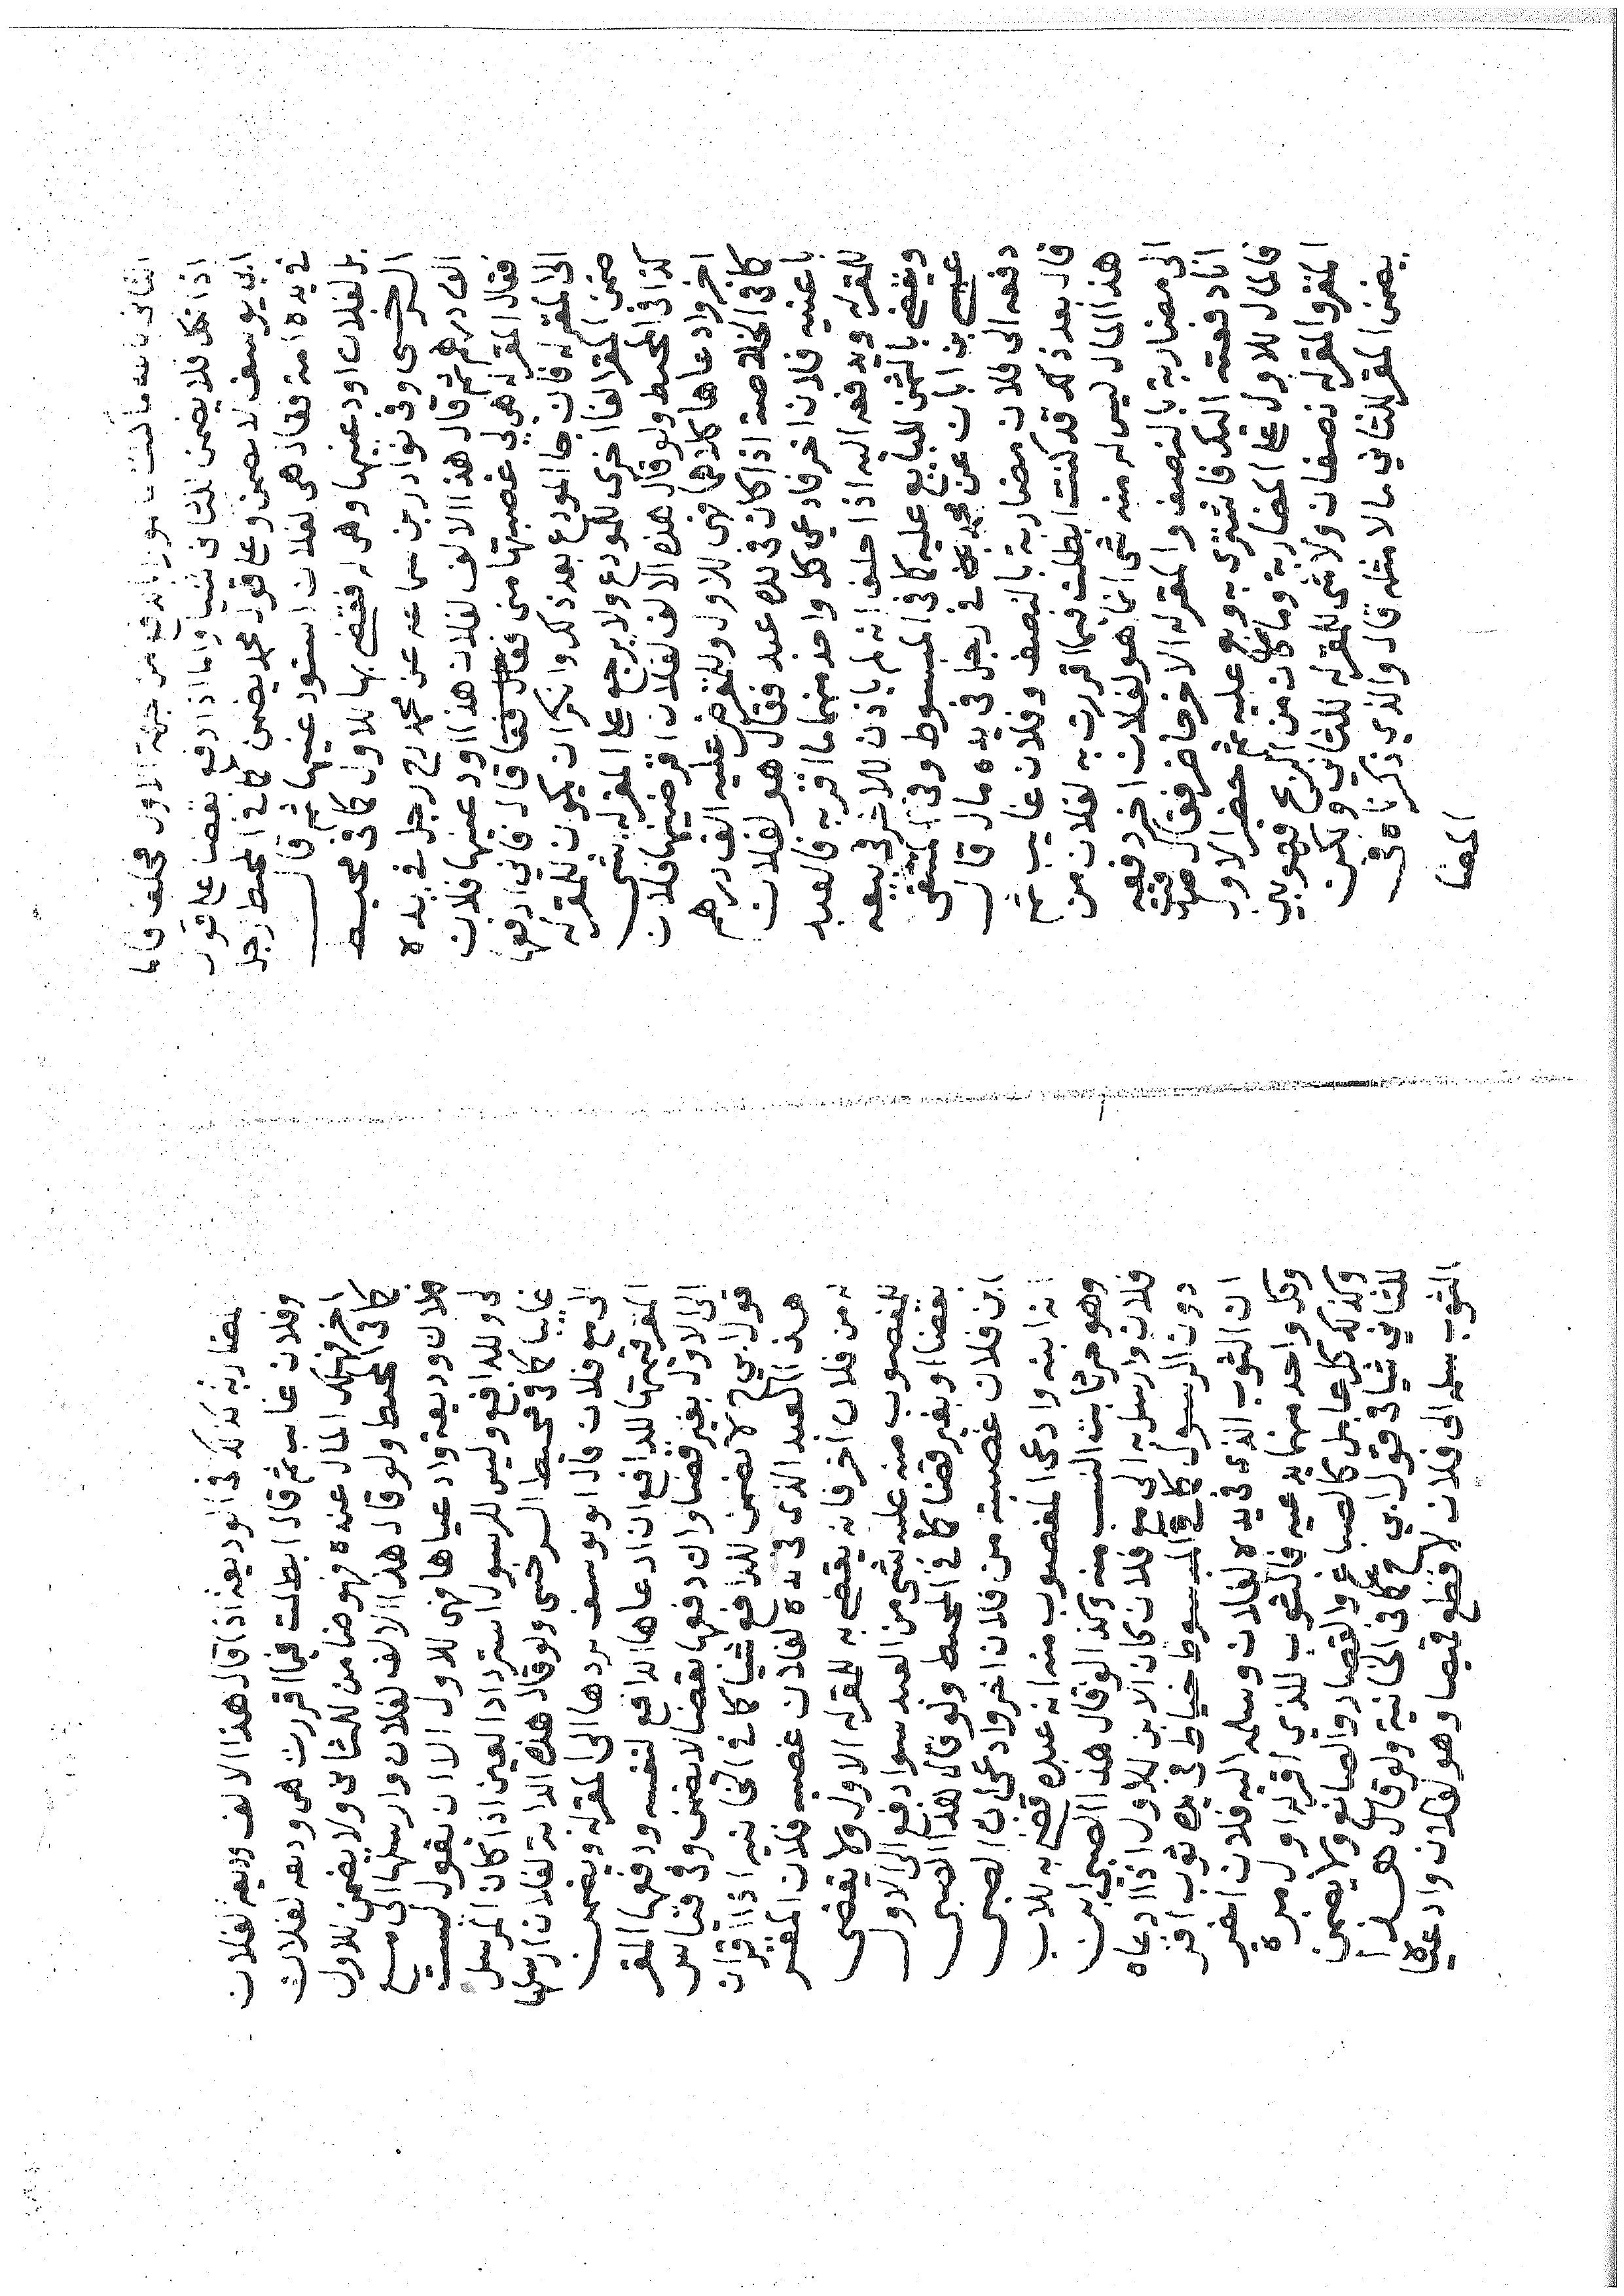 الثاني بانه ما كنت مامورا بالدفع من جهة الاول فحلف فاما
اذا نكل فلا يضمن للثاني شيا واما اذا دفع بقضا على قول
ابي يوسف لا يضمن وعلى قول محمد يضمن كما في المحيط رجل
في يده امة فقال هي لفلان استودعنيها ثم قال
بل لفلان اودعنيها وهي له فقضى بها للاول كما في محيط
السرخسي وفي نوادر بن سماعه عن محمد رح رجل في يده
الف درهم ثم قال هذا الالف لفلان هذا اودعنيها فلان
فقال المقر له هي لي غصبتها مني فقال قال فاني ادفعها
الى المقر له فان جا المودع بعد ذلك وانكر ان يكون للمقر له
ضمن المقر الفا اخرى للمودع ولا يرجع على المقر له بشي
كذا في المحيط ولو قال هذه الالف لفلان اقرضنيها فلان
اخر وادعاها كلاهما فهي للاول وللمقرض عليه الف درهم
كما في الخلاصة اذا كان في يده عبد فقال هو لفلان
باعنيه فلان اخر فادعى كل واحد منهما ما اقر به فالعبد
للمقر له ويدفعه اليه اذا حلف انه لم ياذن للاخر في بيعه
ويقضى بالثمن للبايع عليه كما في المبسوط وفي المنتقى
عيسى بن ابان عن محمد في رجل في يده مال قال
دفعه الى فلان مضاربة بالنصف وفلان غايب ثم
قال بعد ذلك قد كنت ابطلت فيما اقررت به لفلان من
هذا المال ليس له منه شي انما هو لفلان اخر دفعه
الى مضاربة بالنصف والمقر له الاخر حاضر فقال صدقت
انا دفعته اليك فاشترى به وبع عليه ثم حضر الاول
فالمال للاول على المضاربة وما كان من الربح فهو بين
المقر والمقر له نصفان ولا شي للمقر له للثاني ولكن
يضمن المقر للثاني مالا مثله قال والذي ذكرناه في
المضا
لمضاربة كذلك في الوديعة اذا قال هذا الالف وديعة لفلان
وفلان غاب ثم قال ابطلت فيما اقررت هي وديعه لفلان
اخر فهلك المال عنده فهو ضامن للثاني ولا يضمن للاول
كما في المحيط ولو قال هذا الالف لفلان وارسلها الى مع
فلان وديعة وادعياها فهي للاول الا ان يقول ليست
لي وللدافع وليس للرسول استرداد العين اذا كان المرسل
غايبا كما في محيط السرخسي ولو قال هذه الدابة لفلان ارسلها
الى مع فلان قال ابو يوسف يردها الى المقر له ويضمن
المقر قيمتها للدافع ان ادعاها الدافع لنفسه ودفعها المقر
الى الاول بغير قضا وان دفعها بقضا لا يضمن وفي قياس
قول ابي ح لا يضمن للدافع شيا كما في الخانيه اذا اقر ان
هذا العبد الذي في يده لفلان غصبه فلان المقر
له من فلان اخر فانه يقضى به للمقر له الاول ولا يقضى
للمغصوب منه عليه بشي من العبد سوا دفع الى الاول
بقضا او بغير قضا كما في المحيط ولو قال هذا الصبي
ابن فلان غصبته من فلان اخر وادعى اب الصبي
انه ابنه وادعى المغصوب منه انه عبده قضى به للاب
وهو حر ثابت النسب منه وكذا لو قال هذا الصبي ابن
فلان وارسل به الى مع فلان كان الابن للاول اذا ادعاه
دون الرسول كما في المبسوط خياط في يده ثوب اقر
ان الثوب الذي في يده لفلان وسلمه اليه فلان اخر
وكل واحد منهما يدعيه فالثوب للذي اقر له اول مرة
وكذلك كل عامل كالصباغ والقصار والصائغ ولا يضمن
للثاني شيا في قول ابي ح كما في الخانية ولو قال هذا
الثوب سلمه الى فلان لاقطع قميصا وهو لفلان وادعياه